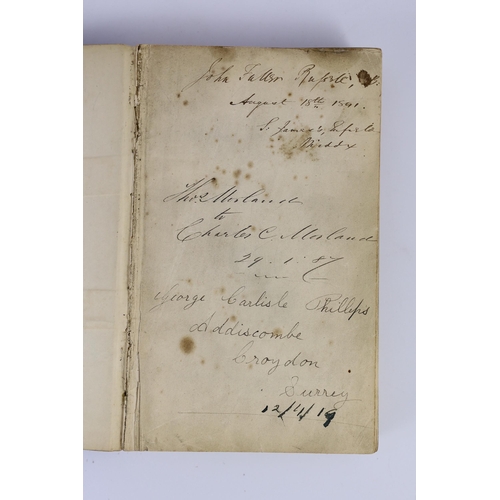 John Fuller Russell,
August 18th 1841.
S. James's, Enfield
Middx
Thos Morland
to
Charles C. Morland
29. 1. 87
George Carlisle Phillips
Addiscombe
Croydon
Surrey
12/4/19